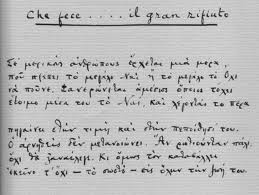 Che fece ..... il gran rifiuto
Σε μερικούς ἀνθρώπους ἔρχεται μιὰ μέρα
ποῦ πρέπει τὸ μεγάλο Ναὶ ἢ τὸ μεγάλο τὸ Ὄχι
νὰ ποῦνε. Φανερώνεται ἀμέσως ὅποιος τὄχει
ἕτοιμο μέσα του τὸ Ναί, καὶ λέγοντάς το πέρα
πηγαίνει στὴν τιμὴ καὶ στὴν πεποίθησί του.
Ὁ ἀρνηθεὶς δὲν μετανοιώνει. Ἂν ρωτιοῦνταν πάλι,
ὄχι θὰ ξαναέλεγε. Κι ὅμως τὸν καταβάλλει
ἐκεῖνο τ' ὄχι — τὸ σωστὸ — εἰς ὅλην τὴν ζωή του.